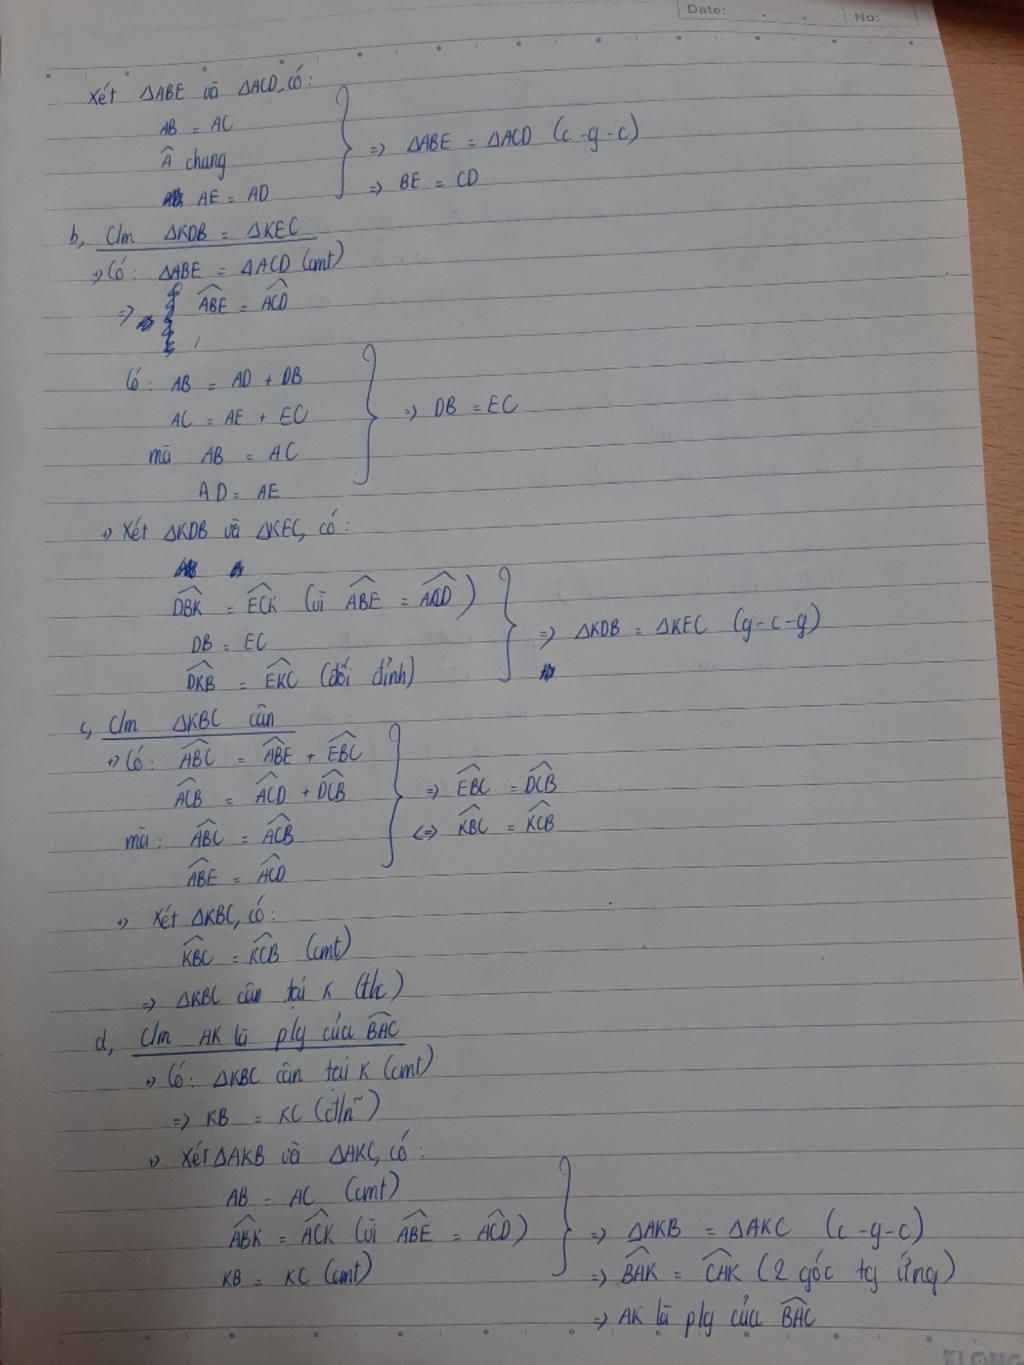 Date: . . No:
Xét ΔABE và ΔACD, có:
AB = AC
Â chung
AE = AD
=> ΔABE = ΔACD (c-g-c)
=> BE = CD
b, C/m ΔKDB = ΔKEC
Có: ΔABE = ΔACD (cmt)
=> \widehat{ABE} = \widehat{ACD}
Có: AB = AD + DB
AC = AE + EC
mà AB = AC
AD = AE
=> DB = EC
Xét ΔKDB và ΔKEC, có:
\widehat{DBK} = \widehat{ECK} (vì \widehat{ABE} = \widehat{ACD})
DB = EC
\widehat{DKB} = \widehat{EKC} (đối đỉnh)
=> ΔKDB = ΔKEC (g-c-g)
c, C/m ΔKBC cân
Có: \widehat{ABC} = \widehat{ABE} + \widehat{EBC}
\widehat{ACB} = \widehat{ACD} + \widehat{DCB}
mà: \widehat{ABC} = \widehat{ACB}
\widehat{ABE} = \widehat{ACD}
=> \widehat{EBC} = \widehat{DCB}
<=> \widehat{KBC} = \widehat{KCB}
Xét ΔKBC, có:
\widehat{KBC} = \widehat{KCB} (cmt)
=> ΔKBC cân tại K (t/c)
d, C/m AK là p/g của \widehat{BAC}
Có: ΔKBC cân tại K (cmt)
=> KB = KC (đ/n~)
Xét ΔAKB và ΔAKC, có:
AB = AC (cmt)
\widehat{ABK} = \widehat{ACK} (vì \widehat{ABE} = \widehat{ACD})
KB = KC (cmt)
=> ΔAKB = ΔAKC (c-g-c)
=> \widehat{BAK} = \widehat{CAK} (2 góc tg ứng)
=> AK là p/g của \widehat{BAC}
KLONG